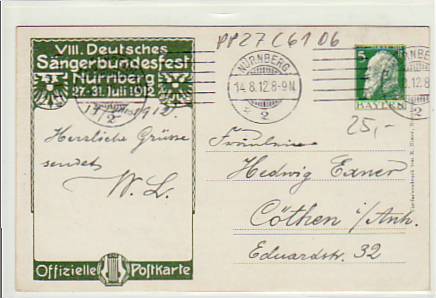 VIII. Deutsches
Sängerbundesfest
Nürnberg
27-31. Juli 1912
PP27 C61 06
NÜRNBERG
14.8.12.8-9N.
* 2
5
BAYERN
25,-
14/8 1912.
Herzliche Grüsse
sendet
W. L.
Fräulein
Hedwig Exner
Cöthen i/Anh.
Eduardstr. 32
Offizielle Postkarte